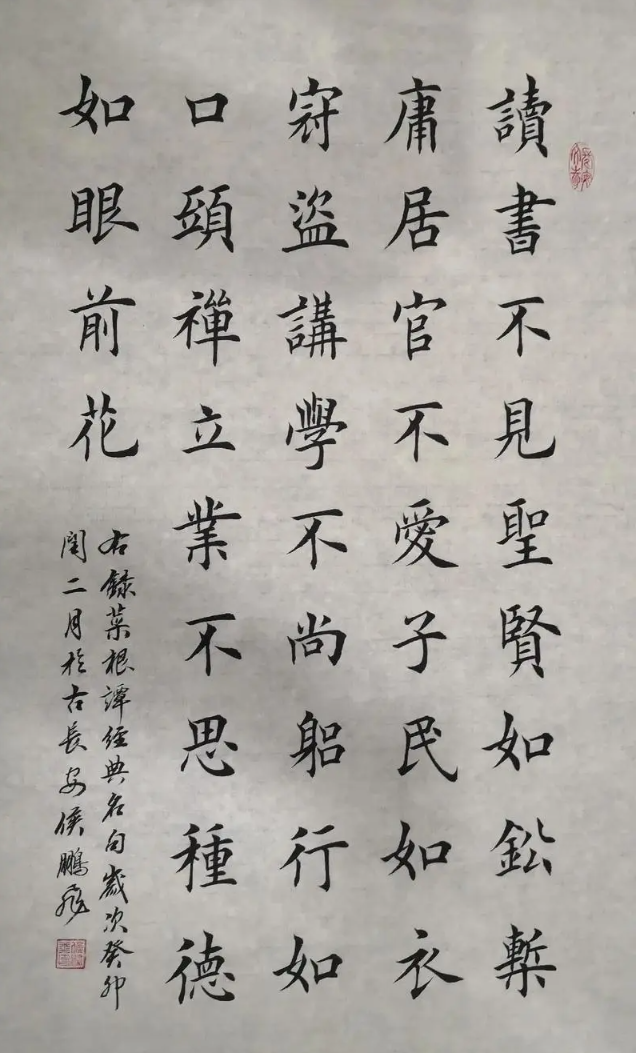 讀書不見聖賢如鈆槧
庸居官不愛子民如衣
冠盜講學不尚躳行如
口頭禪立業不思種德
如眼前花
右録菜根譚經典名句歲次癸卯
閏二月於古長安侯鵬飛